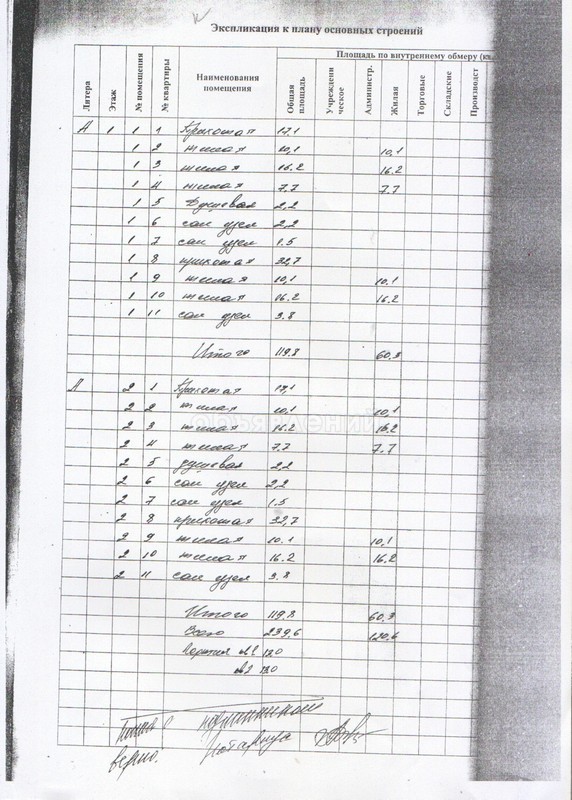 Экспликация к плану основных строений
Площадь по внутреннему обмеру (кв.
Литера Этаж № помещения № квартиры Наименования помещения Общая площадь Учрежденческое Администр. Жилая Торговые Складские Производст
А 1 1 1 Прихожая 17,1
1 2 жилая 10,1 10,1
1 3 жилая 16.2 16.2
1 4 жилая 7.7 7.7
1 5 Душевая 2,2
1 6 сан узел 2,2
1 7 сан узел 1.5
1 8 прихожая 32,7
1 9 жилая 10,1 10,1
1 10 жилая 16.2 16.2
1 11 сан узел 3.8
Итого 119.8 60,3
А 2 1 Прихожая 17,1
2 2 жилая 10,1 10,1
2 3 жилая 16.2 16,2
2 4 жилая 7.7 7.7
2 5 душевая 2,2
2 6 сан узел 2,2
2 7 сан узел 1.5
2 8 прихожая 32,7
2 9 жилая 10.1 10,1
2 10 жилая 16.2 16,2
2 11 сан узел 3.8
Итого 119,8 60.3
Всего 239,6 120,6
№1 13.0
№2 13.0
с подлинником
верно. Нотариус